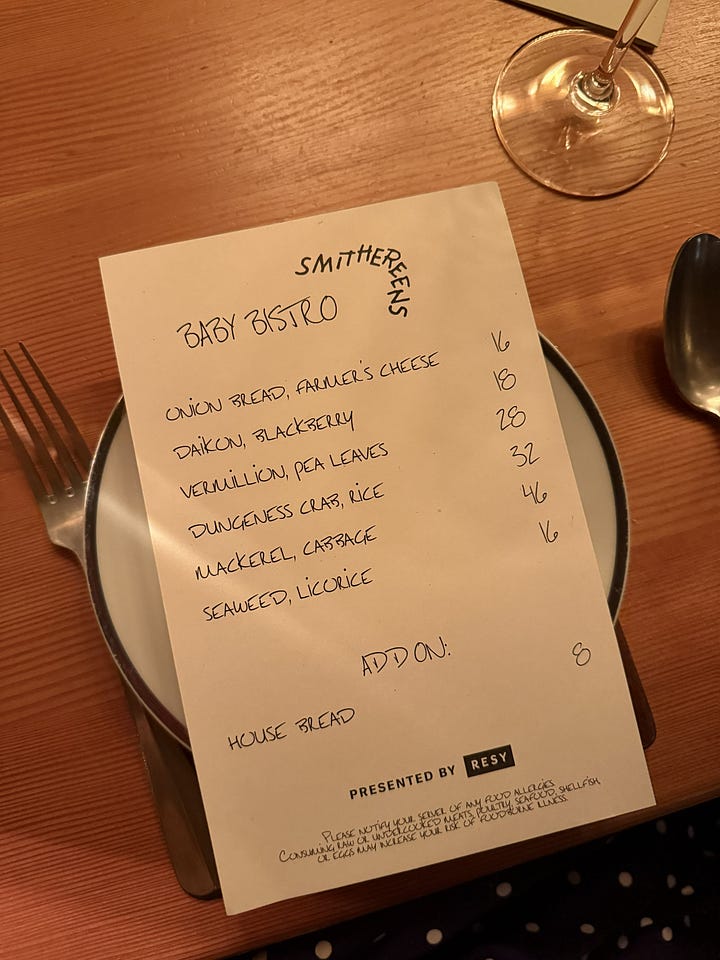 SMITHEREENS
BABY BISTRO
ONION BREAD, FARMER'S CHEESE 16
DAIKON, BLACKBERRY 18
VERMILLION, PEA LEAVES 28
DUNGENESS CRAB, RICE 32
MACKEREL, CABBAGE 46
SEAWEED, LICORICE 16
ADD ON:
HOUSE BREAD 8
PRESENTED BY RESY
PLEASE NOTIFY YOUR SERVER OF ANY FOOD ALLERGIES.
CONSUMING RAW OR UNDERCOOKED MEATS, POULTRY, SEAFOOD, SHELLFISH,
OR EGGS MAY INCREASE YOUR RISE OF FOODBORNE ILLNESS.